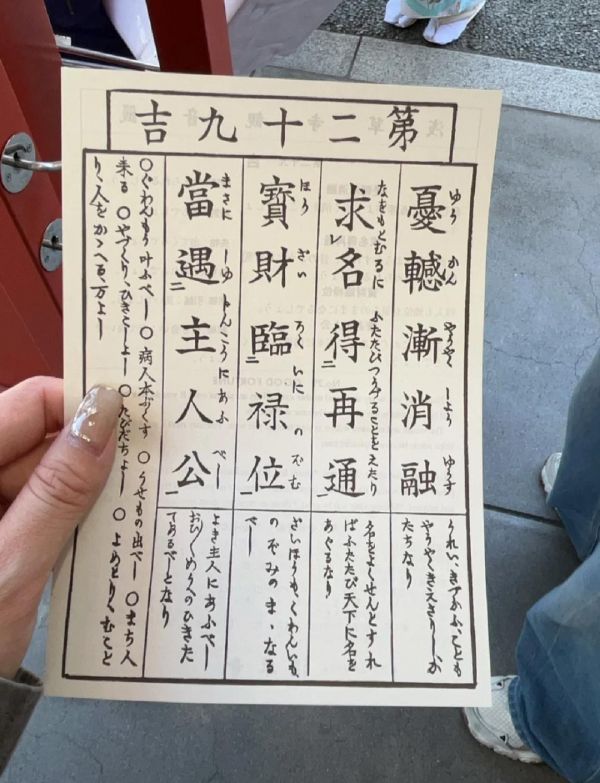 第二十九吉
憂轗漸消融
ゆう かん やうやく しよう ゆうす
うれい、きづかふことも
やうやくきえさりしか
たちなり
求レ名得二再通一
なをもとむるに ふたたびつうずることをえたり
名をよくせんとすれ
ばふたたび天下に名を
あぐるなり
寶財臨二禄位一
ほう ざい ろくいに のぞむ
ざいほうも、くわんいも、
のぞみのまゝなる
べし
當遇二主人公一
まさに しゆじんこうにあふべし
よき主人にあふべし
めうへのひきた
てあるべしとなり
○ぐわんもう叶ふべし ○ 病人本ぷくす ○うせもの出べし ○まち人
来る ○やづくり、ひきこしよし ○たびだちよし ○ よめとり、むこと
り、人をかゝへる、万よし